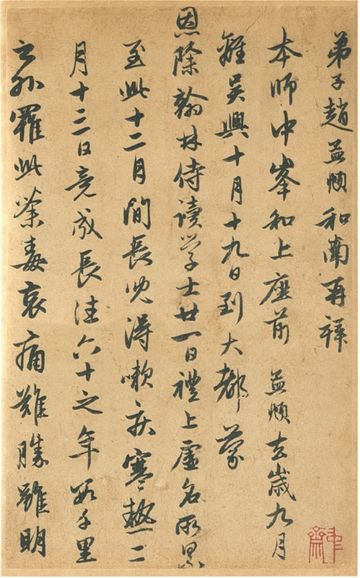 弟子趙孟頫和南再拜
本師中峯和上座前 孟頫去歲九月
離吳興十月十九日到大都蒙
恩除翰林侍讀学士廿一日禮上虛名所累
至此十二月間長兒得嗽疾寒熱二
月十三日竟成長往六十之年數千里
之外罹此荼毒哀痛難勝雖明